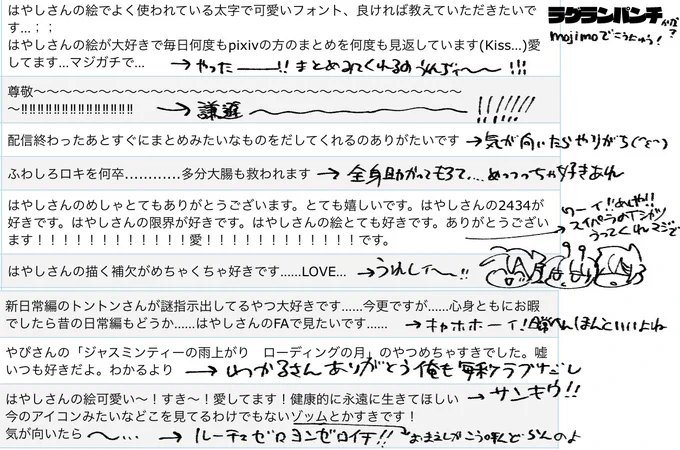 はやしさんの絵でよく使われている太字で可愛いフォント、良ければ教えていただきたいです...；；
ラグランパンチ かな？
mojimoでこうにゅう！
はやしさんの絵が大好きで毎日何度もpixivの方のまとめを何度も見返しています(Kiss...)愛してます...マジガチで...
→ やったー!! まとめみてくれるのうれしぃ〜〜 !!!
尊敬〜〜〜〜〜〜〜〜〜〜〜〜〜〜〜〜〜〜〜〜〜〜〜〜〜〜〜〜〜〜〜〜〜〜
〜!!!!!!!!!!!!!!!!!!!!!!!!!!!!!!!!!!
→ 謙遜 〜〜〜 !!!!!!!
配信終わったあとすぐにまとめみたいなものをだしてくれるのありがたいです
→ 気が向いたらやりがち
ふわしろロキを何卒…………多分大腸も救われます
→ 全身助かってもろて... めっっっちゃ好きあれ
はやしさんのめしゃとてもありがとうございます。とても嬉しいです。はやしさんの2434が
好きです。はやしさんの限界が好きです。はやしさんの絵とても好きです。ありがとうござい
ます！！！！！！！！！！！！愛！！！！！！！！！！！！です。
はやしさんの描く補欠がめちゃくちゃ好きです......LOVE...
→ うれしィ〜!!
新日常編のトントンさんが謎指示出してるやつ大好きです......今更ですが......心身ともにお暇
でしたら昔の日常編もどうか......はやしさんのFAで見たいです......
→ キャホホーイ! ほんといいよね
やぴさんの「ジャスミンティーの雨上がり　ローディングの月」のやつめちゃすきでした。嘘
いつも好きだよ。わかるより
→ わかるさんありがとう 俺も毎秒ラブだし
はやしさんの絵可愛い〜！すき〜！愛してます！健康的に永遠に生きてほしい
→ サンキウ!!
今のアイコンみたいなどこを見てるわけでもないゾッムとかすきです！
気が向いたら 〜...
→ ルーチェゼロヨンゼロイチ!!